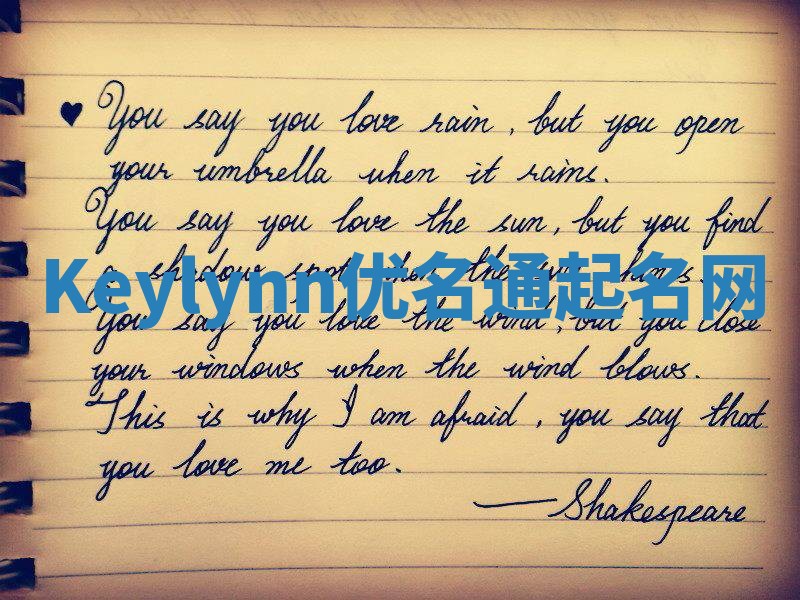 ♥ You say you love rain, but you open
your umbrella when it rains.
You say you love the sun, but you find
a shadow spot when the sun shines.
Keylynn优名通起名网
You say you love the wind, but you close
your windows when the wind blows.
This is why I am afraid, you say that
you love me too.
—Shakespeare